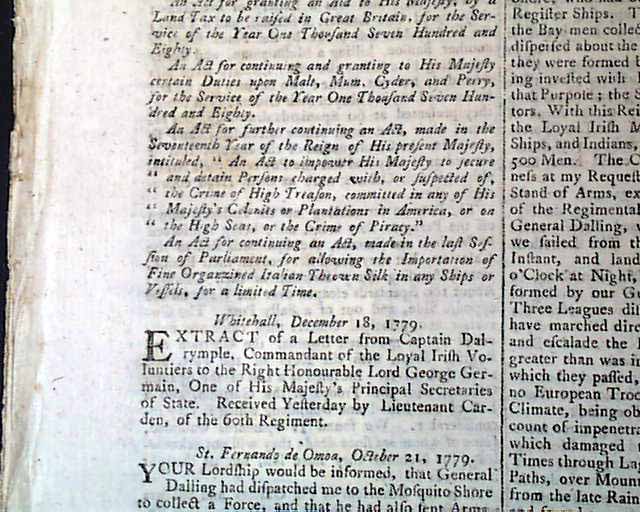 An Act for granting an Aid to His Majesty, by a
Land Tax to be raised in Great Britain, for the Ser-
vice of the Year One Thousand Seven Hundred and
Eighty.
An Act for continuing and granting to His Majesty
certain Duties upon Malt, Mum, Cyder, and Perry,
for the Service of the Year One Thousand Seven Hun-
dred and Eighty.
An Act for further continuing an Act, made in the
Seventeenth Year of the Reign of His present Majesty,
intituled, " An Act to impower His Majesty to secure
" and detain Persons charged with, or suspected of,
" the Crime of High Treason, committed in any of His
" Majesty's Colonies or Plantations in America, or on
" the High Seas, or the Crime of Piracy."
An Act for continuing an Act, made in the last Ses-
sion of Parliament, for allowing the Importation of
Fine Organzined Italian Thrown Silk in any Ships or
Vessels, for a limited Time.
Whitehall, December 18, 1779.
EXTRACT of a Letter from Captain Dal-
rymple, Commandant of the Loyal Irish Vo-
lunteers to the Right Honourable Lord George Ger-
main, One of His Majesty's Principal Secretaries
of State. Received Yesterday by Lieutenant Car-
den, of the 60th Regiment.
St. Fernando de Omoa, October 21, 1779.
YOUR Lordship would be informed, that General
Dalling had dispatched me to the Mosquito Shore
to collect a Force, and that he had also sent Arms,
Register Ships.
the Bay-men collec
dispersed about the
they were formed b
ing invested with
that Purpose; the S
tors. With this Rei
the Loyal Irish
Ships, and Indians,
500 Men. The C
ness at my Request
Stand of Arms, ex
of the Regimental
General Dalling,
we sailed from th
Instant, and land
o'Clock at Night,
formed by our G
Three Leagues dis
have marched dire
and escalade the
greater than was in
which they passed,
no European Troo
Climate, being ob
count of impenetra
which damaged
Times through La
Paths, over Mount
from the late Rain